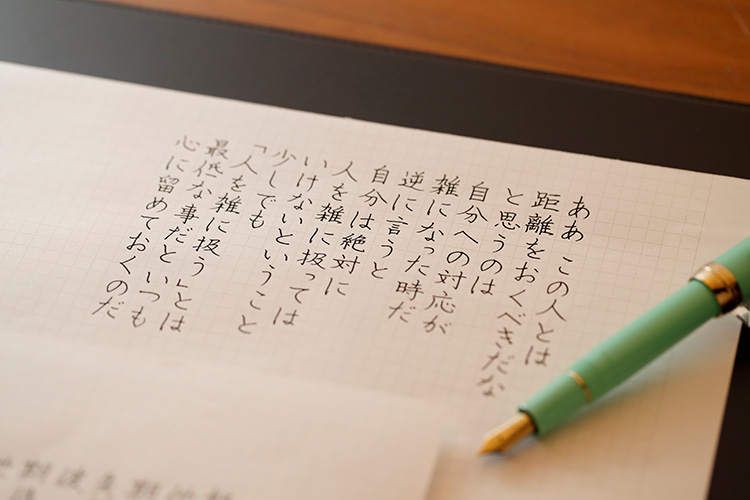 ああこの人とは
距離をおくべきだな
と思うのは
自分への対応が
雑になった時だ
逆に言うと
自分は絶対に
人を雑に扱っては
いけないということ
少しでも
「人を雑に扱う」とは
最低な事だといつも
心に留めておくのだ